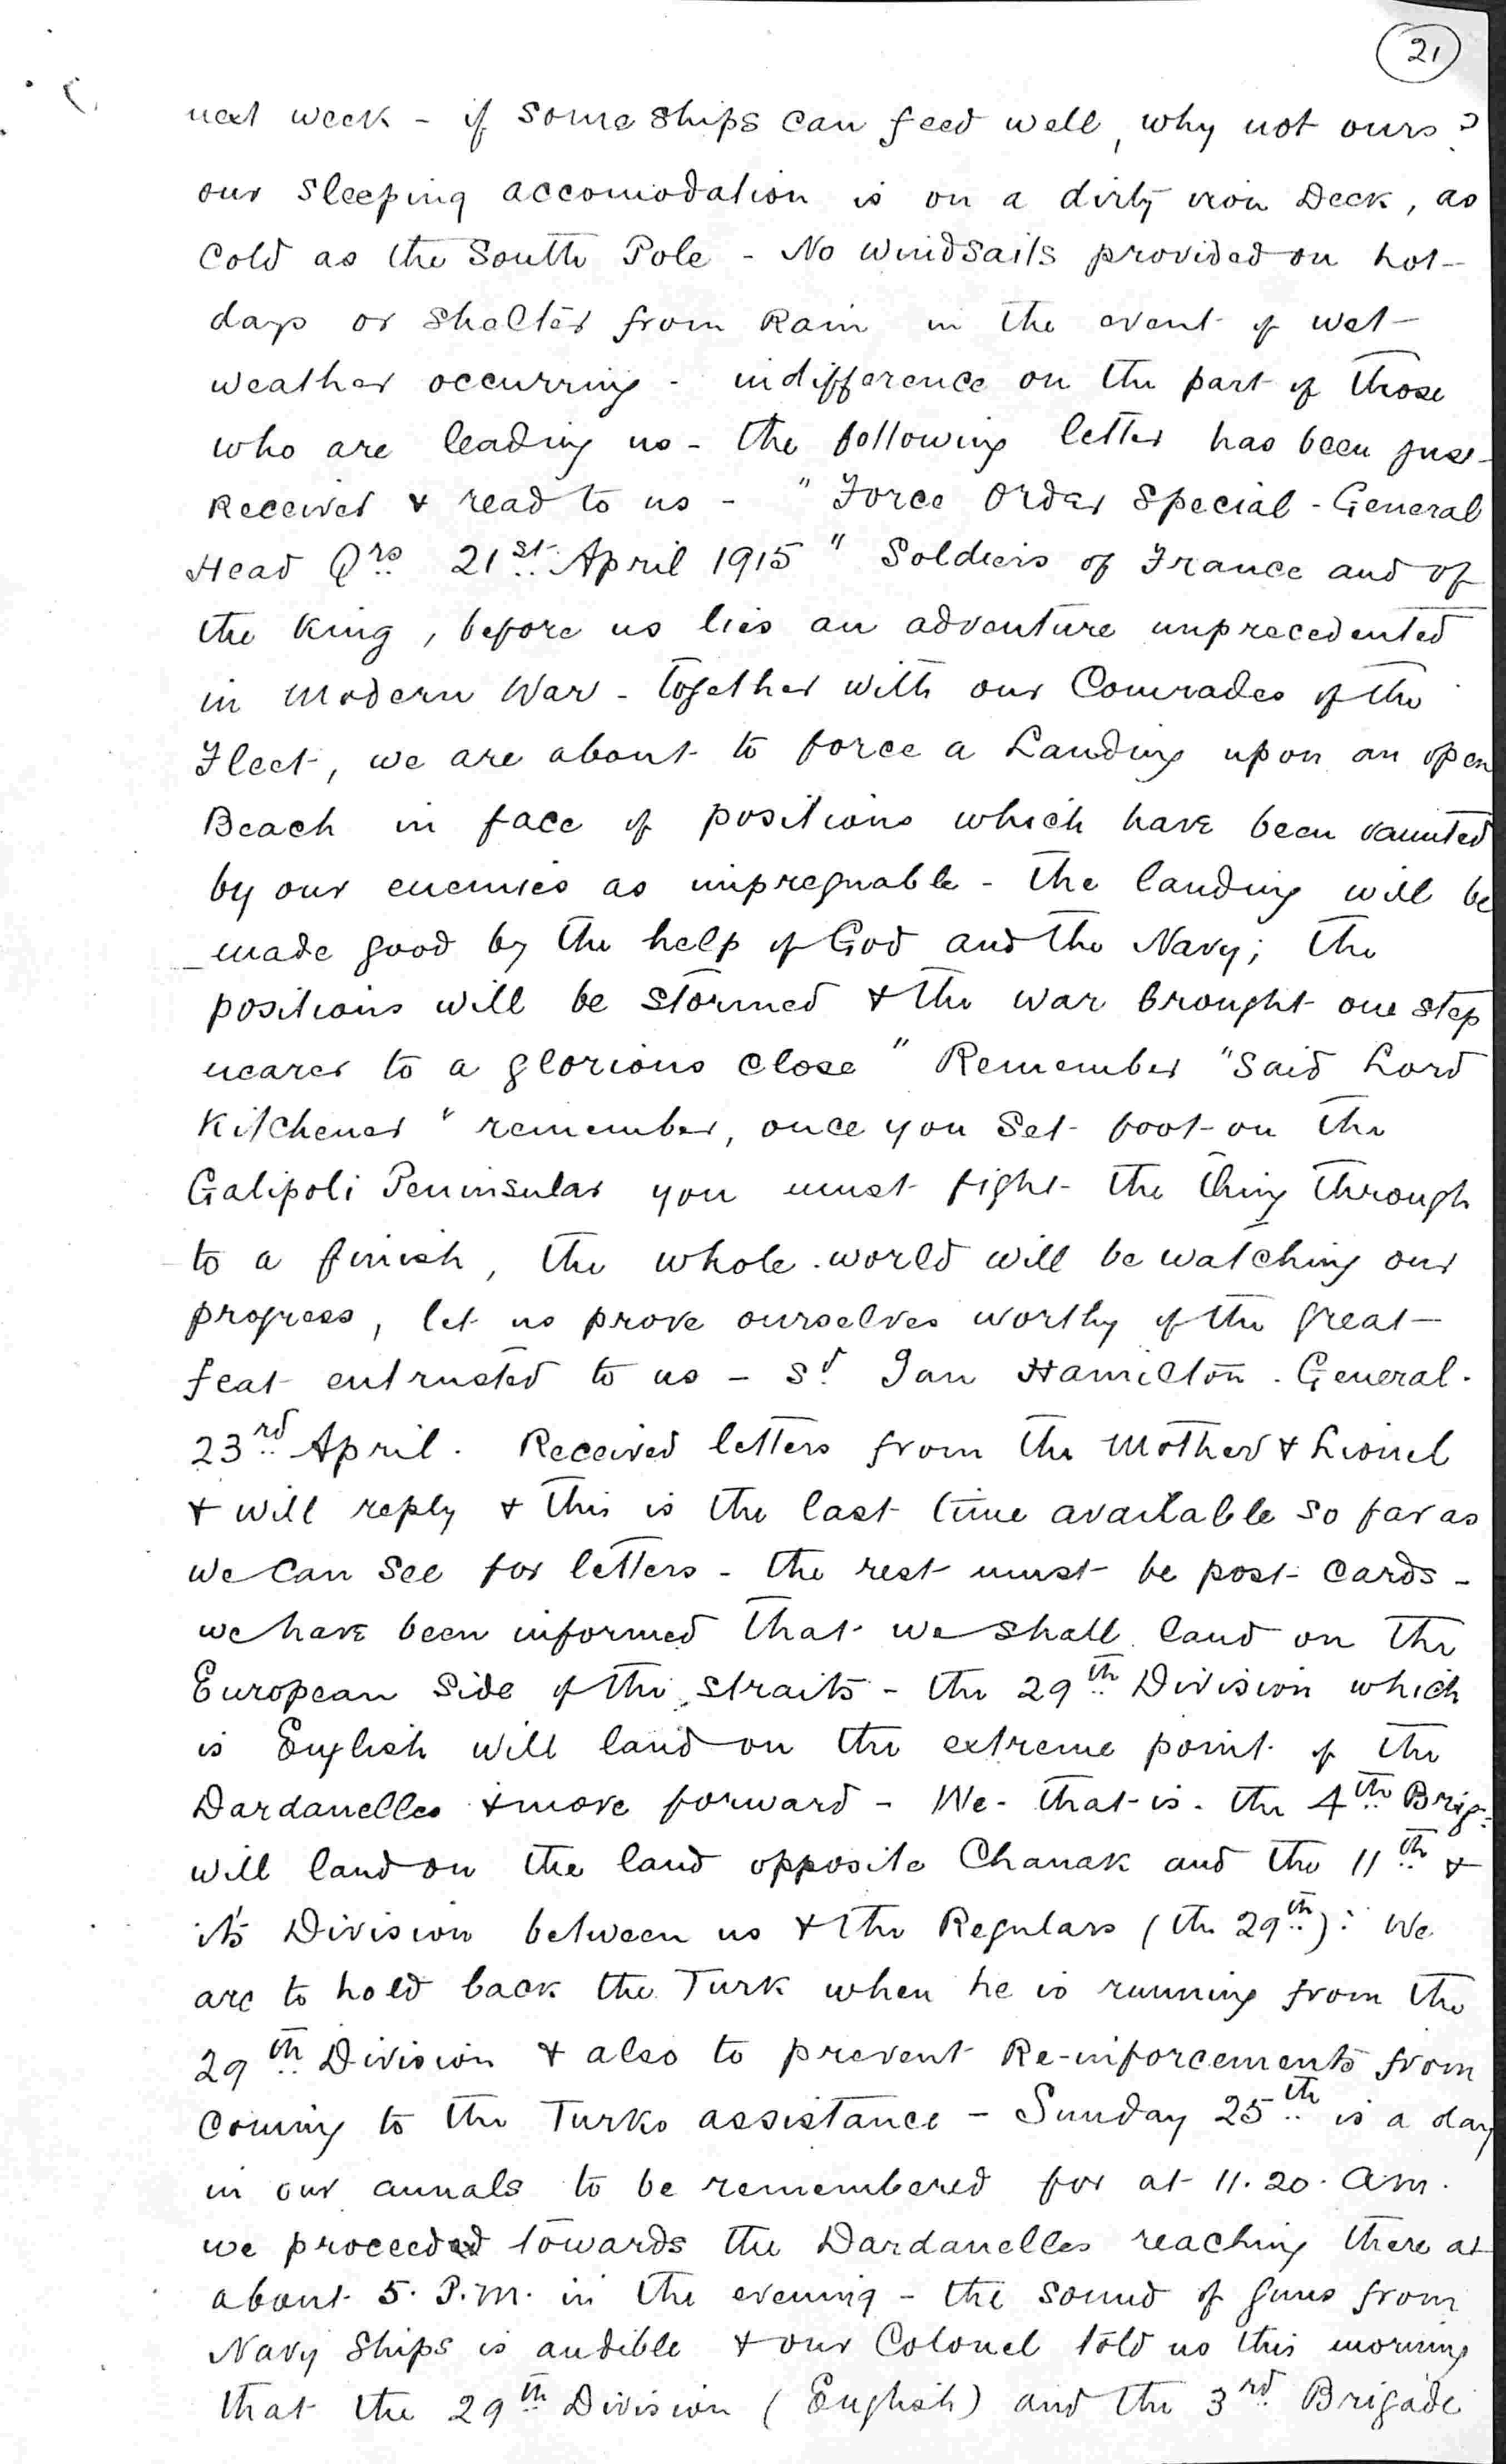 21
next week - if some ships can feed well, why not ours?
our sleeping accomodation is on a dirty iron Deck, as
cold as the South Pole - No windsails provided on hot
days or shelter from Rain in the event of wet
weather occurring - indifference on the part of those
who are leading us - the following letter has been just
Received & read to us - "Force Order Special - General
Head Qrs 21st April 1915" Soldiers of France and of
the King, before us lies an adventure unprecedented
in Modern War - together with our Comrades of the
Fleet, we are about to force a Landing upon an open
Beach in face of positions which have been vaunted
by our enemies as impregnable - The landing will be
made good by the help of God and the Navy; the
positions will be stormed & the war brought one step
nearer to a glorious close" Remember "Said Lord
Kitchener "remember, once you set foot on the
Galipoli Peninsular you must fight the thing through
to a finish, the whole world will be watching our
progress, let us prove ourselves worthy of the great
feat entrusted to us - Sd Ian Hamilton. General.
23rd April. Received letters from the Mother & Lionel
& will reply & this is the last time available so far as
we can see for letters - the rest must be post cards -
we have been informed that we shall land on the
European Side of the straits - the 29th Division which
is English will land on the extreme point of the
Dardanelles & move forward - We - that is - the 4th Brig:
will land on the land opposite Chanak and the 11th &
it's Division between us & the Regulars (the 29th): We
are to hold back the Turk when he is running from the
29th Division & also to prevent Re-inforcements from
coming to the Turks assistance - Sunday 25th is a day
in our annals to be remembered for at 11.20. am.
we proceeded towards the Dardanelles reaching there at
about 5. P.M. in the evening - the sound of guns from
Navy Ships is audible & our Colonel told us this morning
that the 29th Division (English) and the 3rd Brigade